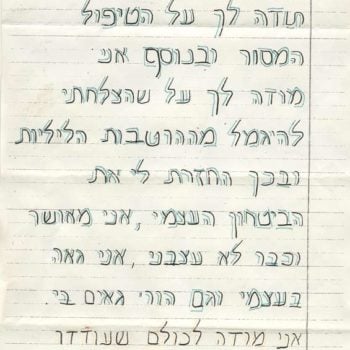 תודה לך על הטיפול
המסור ובנוסף אני
מודה לך על שהצלחתי
להיגמל מההרטבות הליליות
ובכך החזרת לי את
הביטחון העצמי, אני מאושר
וכבר לא עצבני, אני גאה
בעצמי וגם הורי גאים בי.
אני מודה לכולם שעודדו